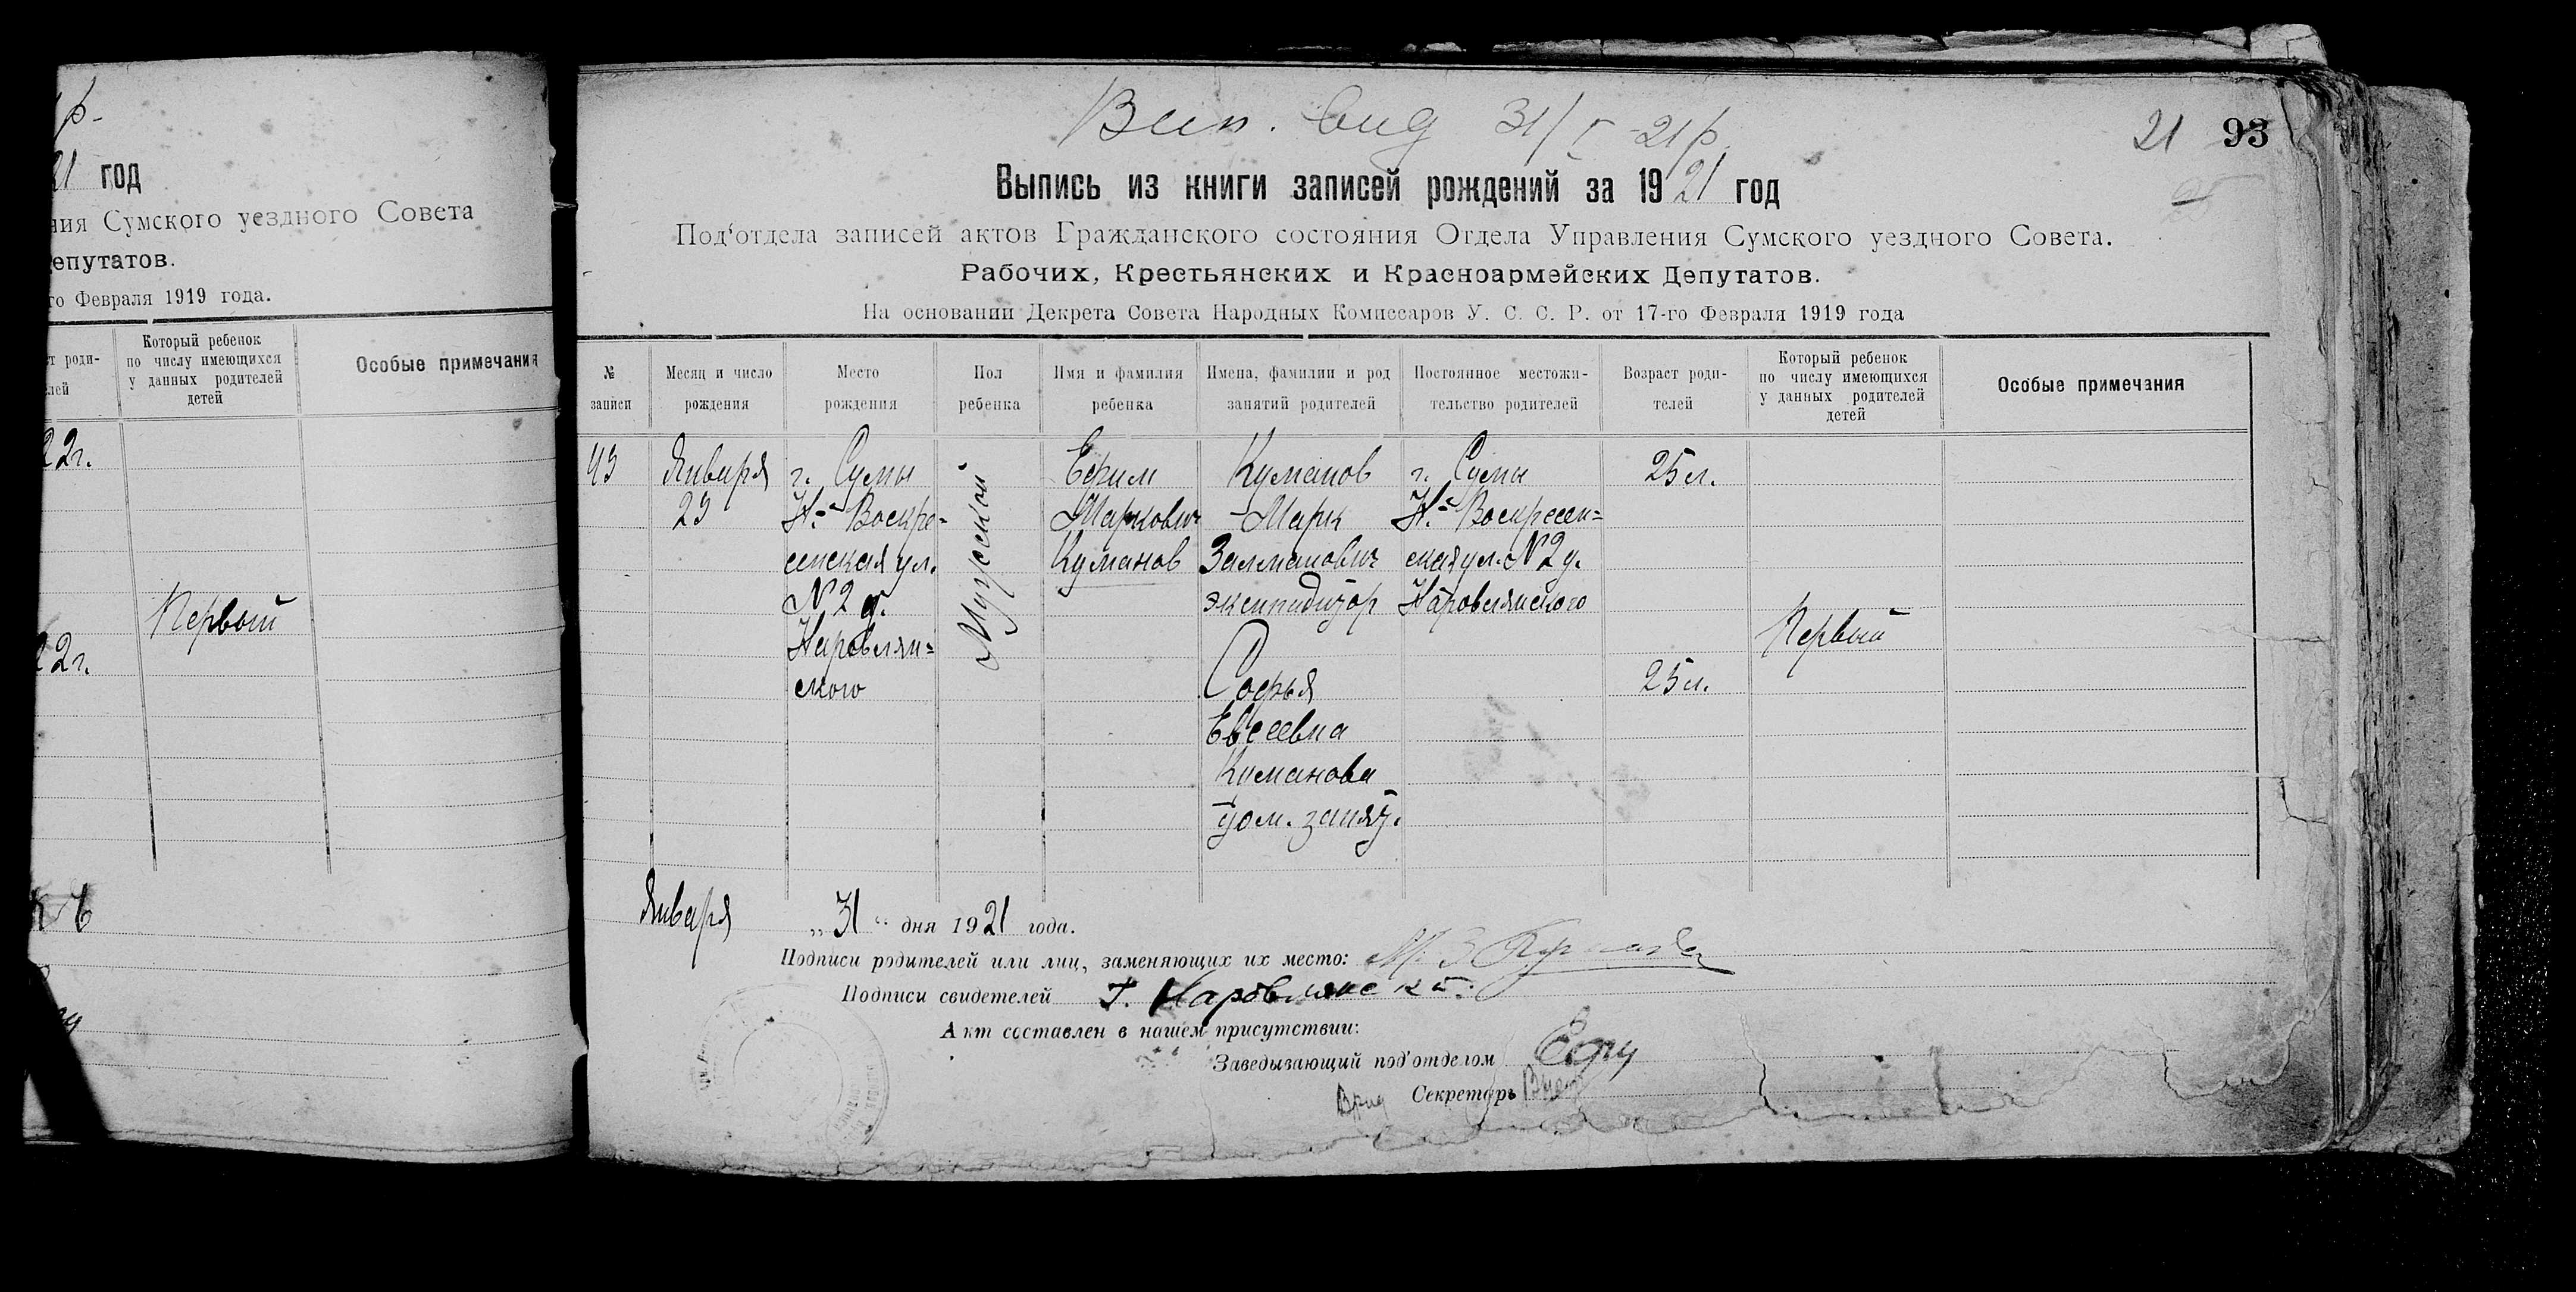 р-
21 год
ния Сумского уездного Совета
епутатов.
го Февраля 1919 года.
т роди-
лей
Который ребенок
по числу имеющихся
у данных родителей
детей
Особые примечания
22г.
Первый
22г.
Вип. вид 31/I-21р.
21 93
Выпись из книги записей рождений за 1921 год
Под‘отдела записей актов Гражданского состояния Отдела Управления Сумского уездного Совета.
Рабочих, Крестьянских и Красноармейских Депутатов.
На основании Декрета Совета Народных Комиссаров У. С. С. Р. от 17-го Февраля 1919 года
№
записи
Месяц и число
рождения
Место
рождения
Пол
ребенка
Имя и фамилия
ребенка
Имена, фамилии и род
занятий родителей
Постоянное местожи-
тельство родителей
Возраст роди-
телей
Который ребенок
по числу имеющихся
у данных родителей
детей
Особые примечания
93
Января
23
г. Сумы
Н.- Воскре-
сенская ул.
№ 2 д.
Наровлян=
ского
Мужской
Ефим
Маркович
Куманов
Куманов
Марк
Залманович
экспедитор
Софья
Евсеевна
Куманова
дом. занят.
г. Сумы
Н.- Воскресен=
ская ул. № 2 д.
Наровлянского
25 л.
25 л.
Первый
Января „31“ дня 1921 года.
Подписи родителей или лиц, заменяющих их место: М. З Куманов
Подписи свидетелей Г. Наровлянский
Акт составлен в нашем присутствии:
Заведывающий под‘отделом
Врид Секретарь